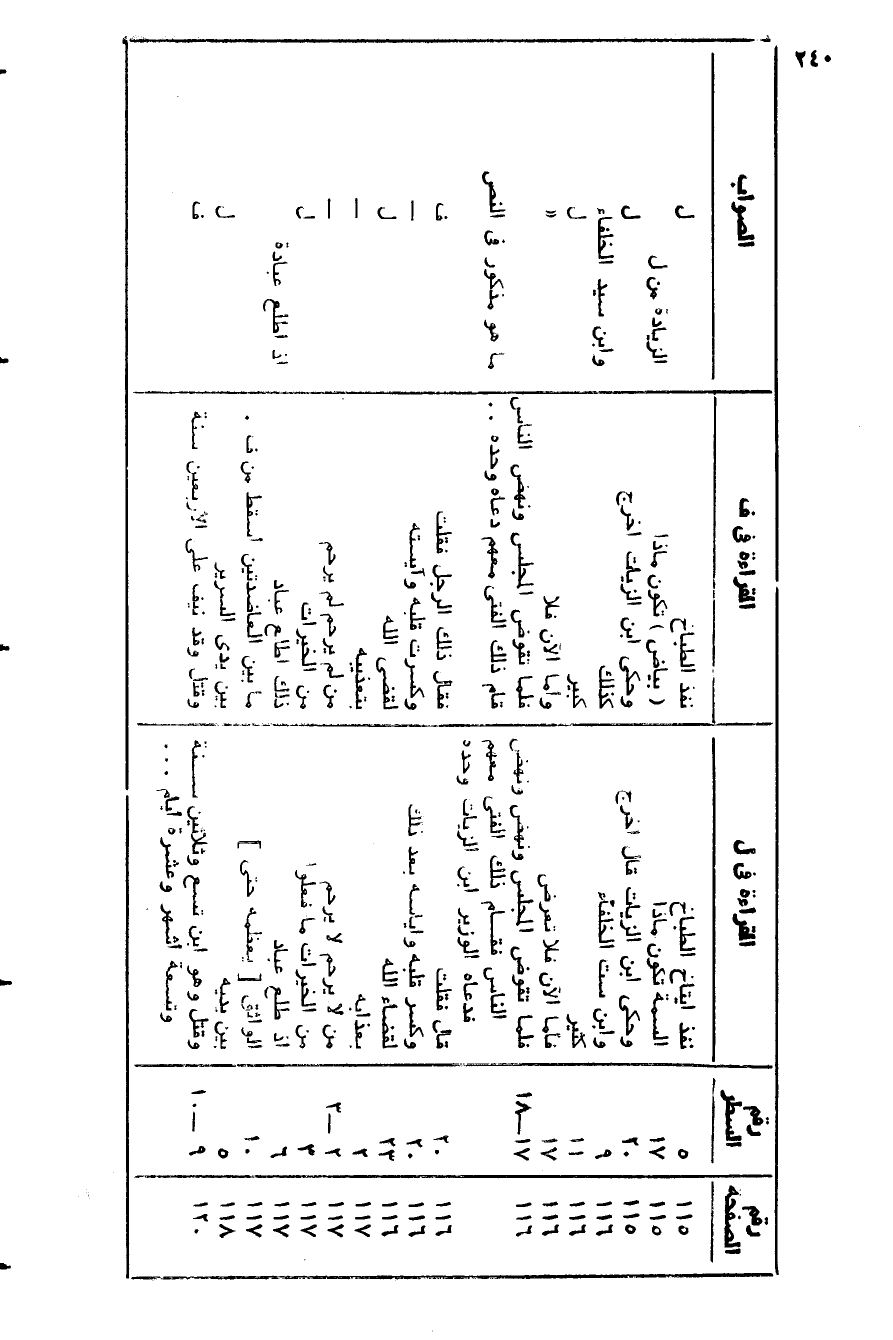 ٢٤٠
رقم الصفحة | رقم السطر | القراءة فى ل | القراءة فى ف | الصواب
١١٥ | ٥ | نفذ ايتاخ الطباخ | نفذ الطباخ | ل
١١٥ | ١٧ | السمة تكون ماذا | ( بياض ) تكون ماذا | الزيادة من ل
١١٥ | ٢٠ | وحكى ابن الزيات قال اخرج | وحكى ابن الزيات اخرج | ل
١١٦ | ٩ | وابن ست الخلفاء | كذلك | وابن سيد الخلفاء
١١٦ | ١١ | كثير | كبير | ل
١١٦ | ١٧ | فأما الآن فلا تعرض | واما الآن فلا | »
١١٦ | ١٧—١٨ | فلما تقوض المجلس ونهض ونهض | فلما تقوض المجلس ونهض الناس
الناس فقام ذلك الفتى معهم | قام ذلك الفتى معهم دعاه وحده . . | ما هو مذكور فى النص
فدعاه الوزير ابن الزيات وحده
١١٦ | ٢٠ | قال فقلت | فقال ذلك الرجل فقلت | ف
١١٦ | ٢٠ | وكسر قلبه واياسه بعد ذلك | وكسرت قلبه وآيسته | ا
١١٦ | ٢٣ | لقضاء الله | لقضى الله | ل
١١٧ | ٢ | بعذابه | بتعذيبه | ا
١١٧ | ٢—٣ | من لا يرحم لا يرحم | من لم يرحم لم يرحم | ا
١١٧ | ٣ | من الخيرات ما فعلوا | من الخيرات | ل
١١٧ | ٦ | اذ طلع عباد | ذلك اطاع عباد | اذ اطلع عبادة
١١٧ | ١٠ | الواثق [ يعظمه حتى ] | ما بين العاضدتين اسقط من ف .
١١٨ | ٥ | بين يديه | بين يدى السرير | ل
١٢٠ | ٩—١٠ | وقتل وهو ابن تسع وثلاثين سنة | وقتل وقد نيف على الأربعين سنة | ف
وتسعة اشهر وعشرة أيام . . .